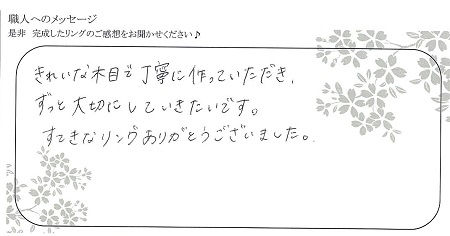 職人へのメッセージ
是非 完成したリングのご感想をお聞かせください♪
きれいな木目で丁寧に作っていただき、
ずっと大切にしていきたいです。
すてきなリングありがとうございました。